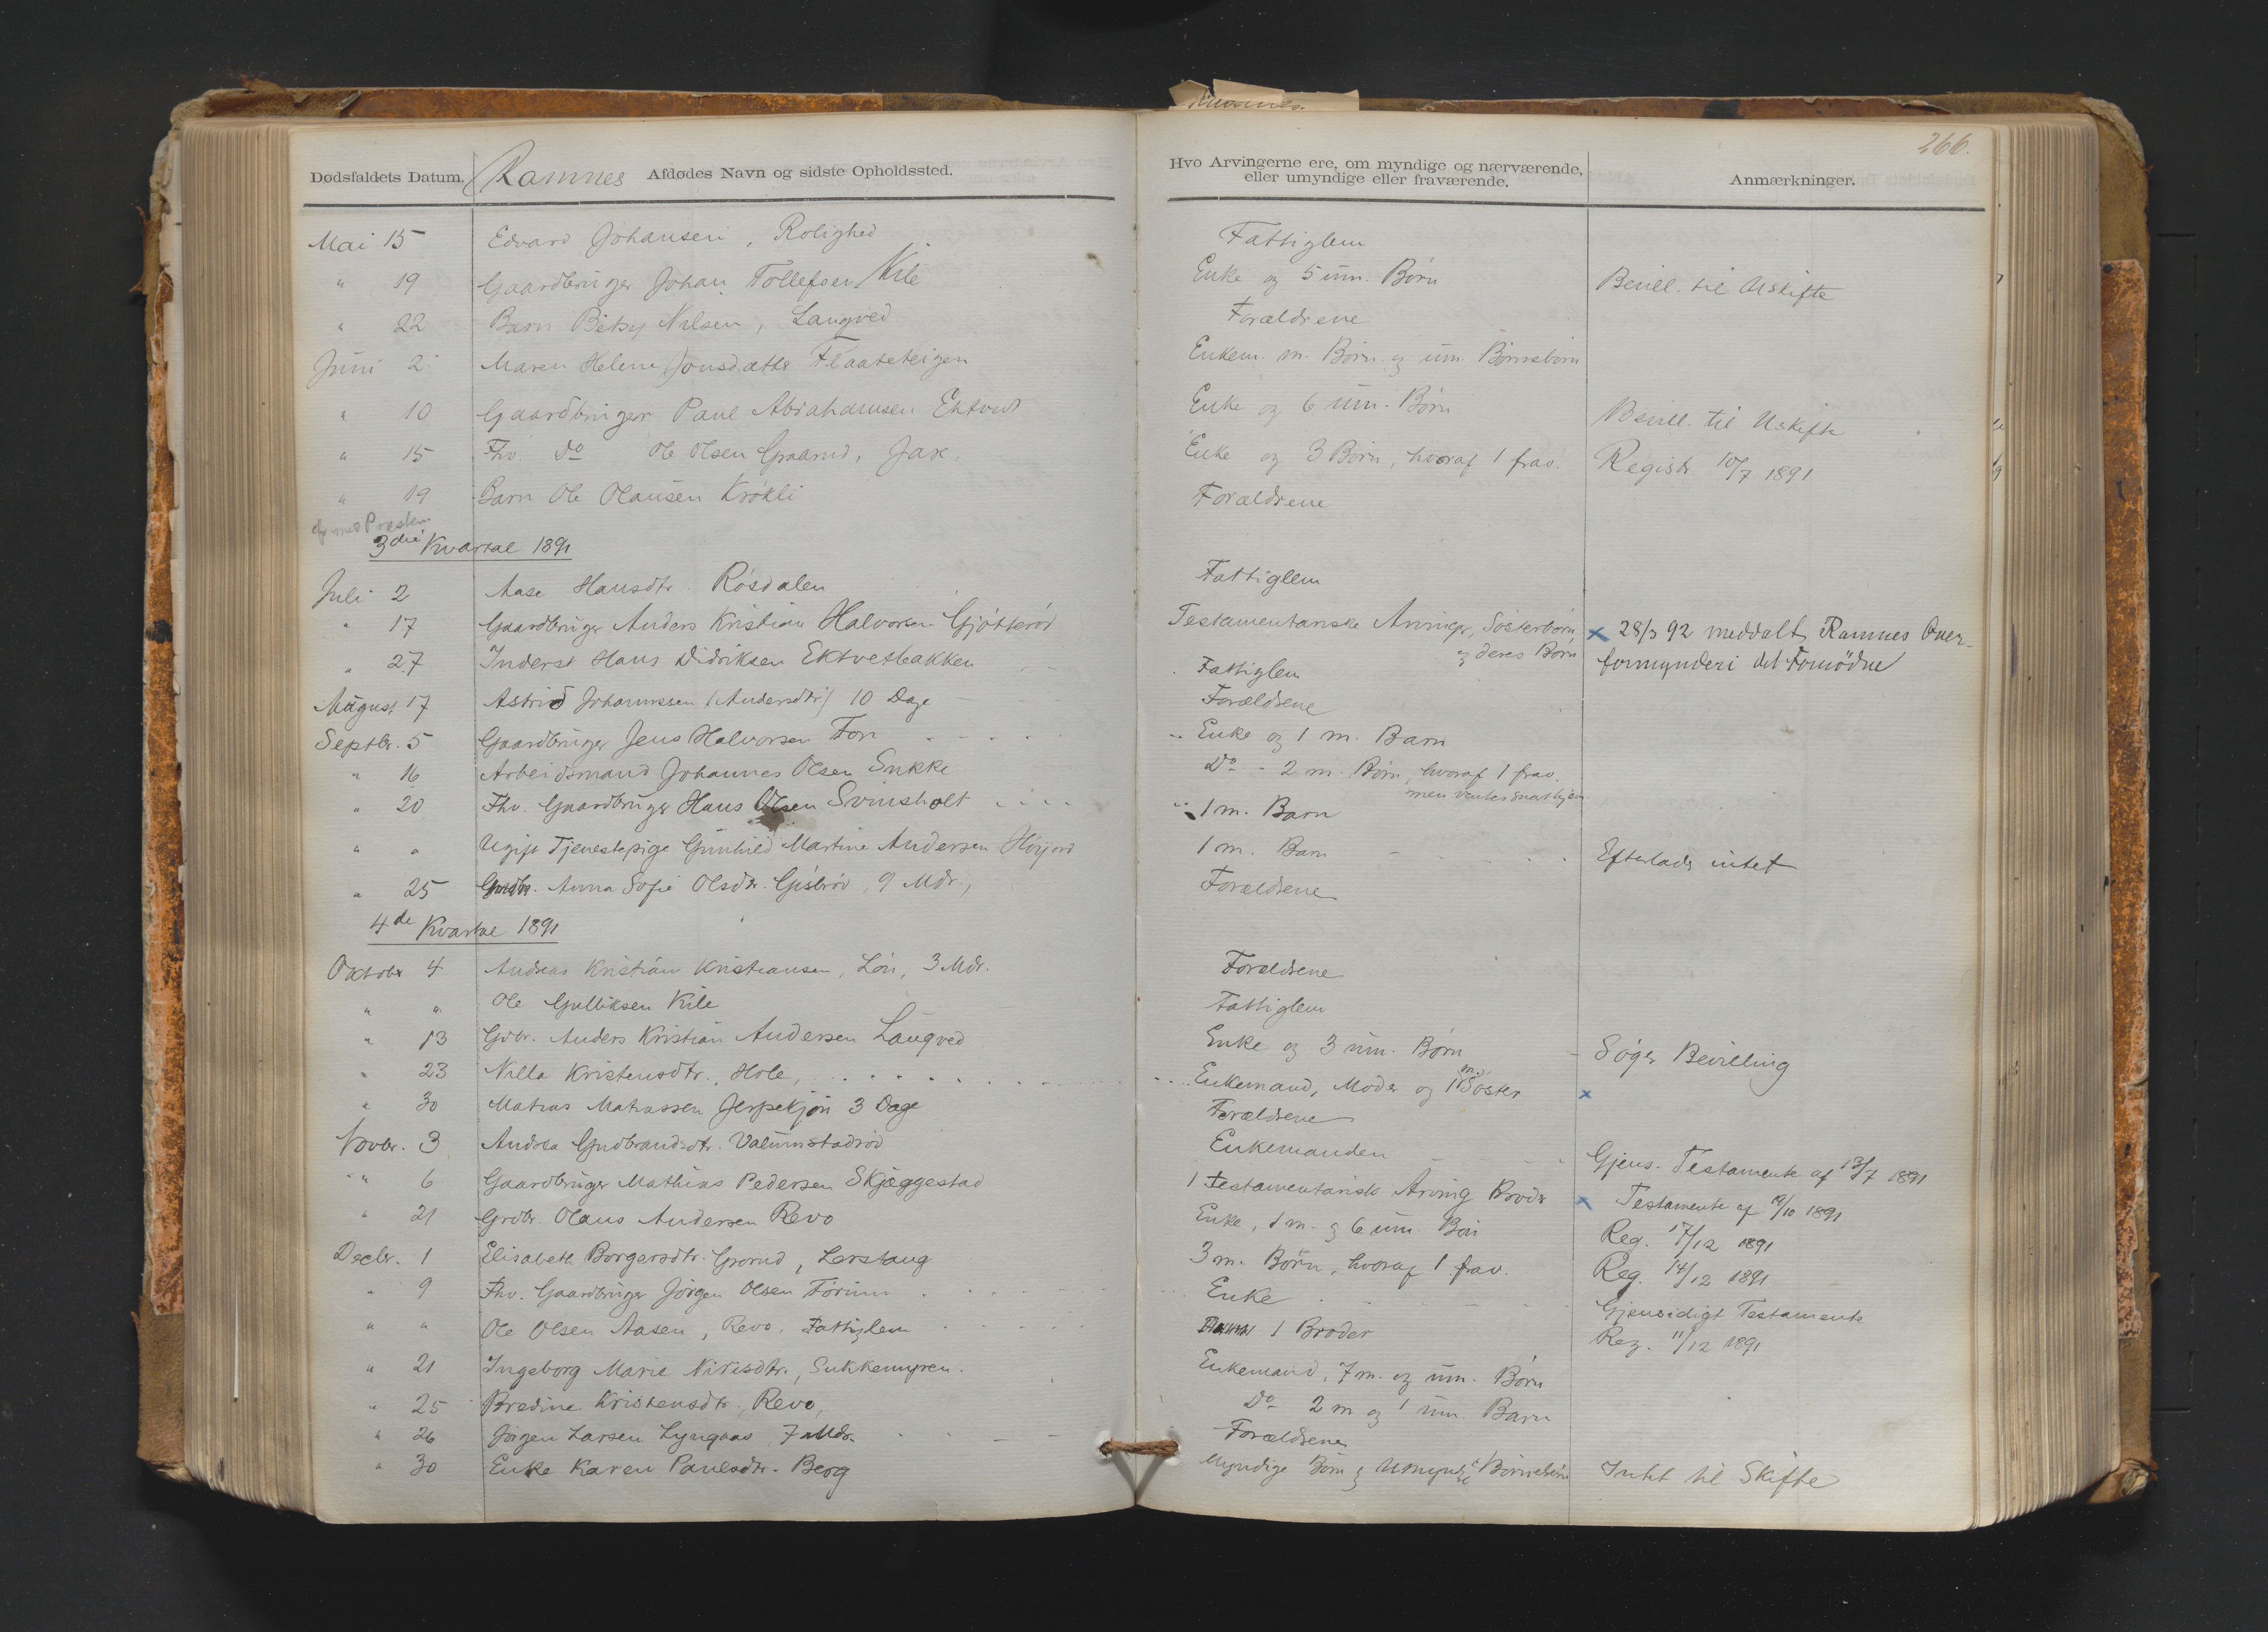 Ramnes.
266.
Dødsfaldets Datum. Ramnes Afdødes Navn og sidste Opholdssted. Hvo Arvingerne ere, om myndige og nærværende, eller umyndige eller fraværende. Anmærkninger.
Mai 15 Edvard Johansen, Rolighed Fattiglem
" 19 Gaardbruger Johan Tollefsen Kile Enke og 5 um. Børn Bevill. til Uskifte
" 22 Barn Betsy Nilsen, Langved Forældrene
Juni 2 Maren Helene Jonsdatter Flaateteigen Enkem. m. Børn og um. Børnebørn
" 10 Gaardbruger Paul Abrahamsen Ektvedt Enke og 6 um. Børn Bevill. til Uskifte
" 15 Fhv. Do Ole Olsen Graarud, Jare. Enke og 3 Børn, hvoraf 1 frav. Registr. 10/7 1891
" 19 Barn Ole Olausen Krökli Forældrene
cfr med Presten
3die Kvartal 1891
Juli 2 Aase Hansdtr. Rösdalen Fattiglem
" 17 Gaardbruger Anders Kristian Halvorsen Gjötteröd Testamentariske Arvinger, Søsterbørn, og deres Børn x 28/3 92 meddelt Ramnes Over-
formynderi det Fornödne
" 27 Inderst Hans Didriksen Ektvetbakken Fattiglem
August 17 Astrid Johannessen (Andersdtr.) 10 Dage Forældrene
Septbr. 5 Gaardbruger Jens Halvorsen Fon Enke og 1 m. Barn
" 16 Arbeidsmand Johannes Olsen Sukke Do - 2 m. Børn, hvoraf 1 frav.
men ventes snart hjem
" 20 Fhv. Gaardbruger Hans Olsen Svinsholt 1 m. Barn
" " Ugift Tjenestepige Gunhild Martine Andersen Höijord 1 m. Barn Efterlader intet
" 25 Anna Sofie Olsdtr. 9 Mdr., Forældrene
4de Kvartal 1891
Oktober 4 Andreas Kristian Kristiansen, Lön, 3 Mdr. Forældrene
" " Ole Gulliksen Kile Fattiglem
" 13 Gdbr. Anders Kristian Andersen Langved Enke og 3 um. Børn - Söger Bevilling
" 23 Nilla Kristensdtr., Hole, Enkemand, Moder og 1 m. Søster x
" 30 Matias Matiassen Jerpekjön 3 Dage Forældrene
Novbr. 3 Andrea Gudbrandsdtr. Valumstadröd Enkemanden Gjens. Testamente af 13/7 1891
" 6 Gaardbruger Mathias Pedersen Skjæggestad 1 testamentarisk Arving Broder x Testamente af 19/10 1891
" 21 Grdbr. Olaus Andersen Revo Enke, 1 m. og 6 um. Børn Reg. 17/12 1891
Decbr. 1 Elisabeth Borgersdtr. Grorud, Lerstang 3 m. Børn, hvoraf 1 frav. Reg. 14/12 1891
" 9 Fhv. Gaardbruger Jörgen Olsen Förum Enke Gjensidigt Testamente
" " Ole Olsen Aasen, Revo. Fattiglem 1 Broder Reg. 11/12 1891
" 21 Ingeborg Marie Nirisdtr., Sukkemyren. Enkemand, 7 m. og um. Børn
" 25 Bredine Kristensdtr., Revo, Do 2 m og 1 um. Barn
" 26 Jörgen Larsen Lyngaas 7 Mdr. Forældrene
" 30 Enke Karen Paulsdtr. Berg Myndige Børn og Umyndige Børnebørn Intet til Skifte